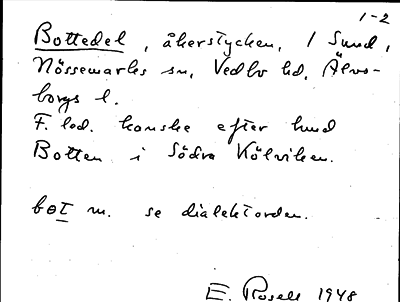 1-2
Bottedel, åkerstycken, i Sund,
Nössemarks sn, Vedbo hd, Älvs-
borgs l.
F. led. kanske efter lund
Botten i Södra Kölviken.
bɵt m. se dialektorden.
E. Rosell 1948